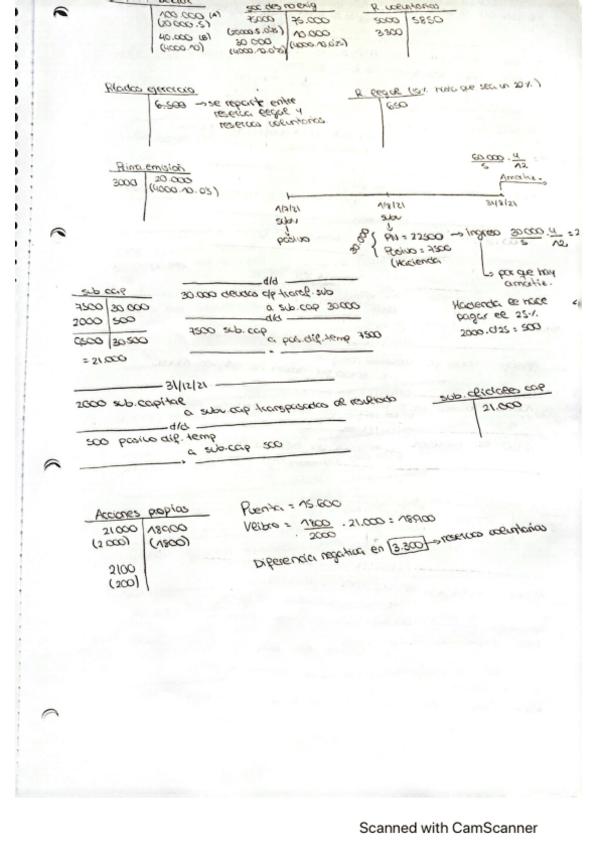 soc des no exig
R voluntarias
100.000 (A)
(20.000.5)
40.000 (B)
(4000.10)
75000 | 75.000
(20000.5.0'75) | 10.000
30.000 | (4000.10.0'25)
(4000.10.0'75)
5000 | 5850
3300
Rtados ejercicio
6.500 → se reparte entre
reserva legal y
reservas voluntarias
R legal (10%
650
Prima emisión
3000 | 20.000
(4000.10.05)
60.000 . 4
5 12
Amortiz.
1/7/21
subv
↓
pasivo
1/8/21
subv
↓
31/12/21
PN = 22500 → ingreso 30000 . 4
5 12
Pasivo = 7500
(Hacienda
porque hay
amortiz.
Hacienda le hace
pagar el 25%
2000.0'25 = 500
sub cap
7500 | 30.000
2000 | 500
9500 | 30.500
= 21.000
d/d
30.000 deudas c/p transf. sub
a sub.cap 30.000
d/d
7500 sub.cap
a pas.dif.temp 7500
31/12/21
2000 sub.capital
a subv cap transpasadas al resultado
d/d
500 pasivo dif. temp
a sub.cap 500
sub. oficiales cap
21.000
Acciones propias
21.000 | 18900
(2000) | (1800)
2100
(200)
Pventa = 15.600
Vlibro = 1800 . 21.000 = 18900
2000
Diferencia negativa en 3.300 → reservas voluntarias
Scanned with CamScanner